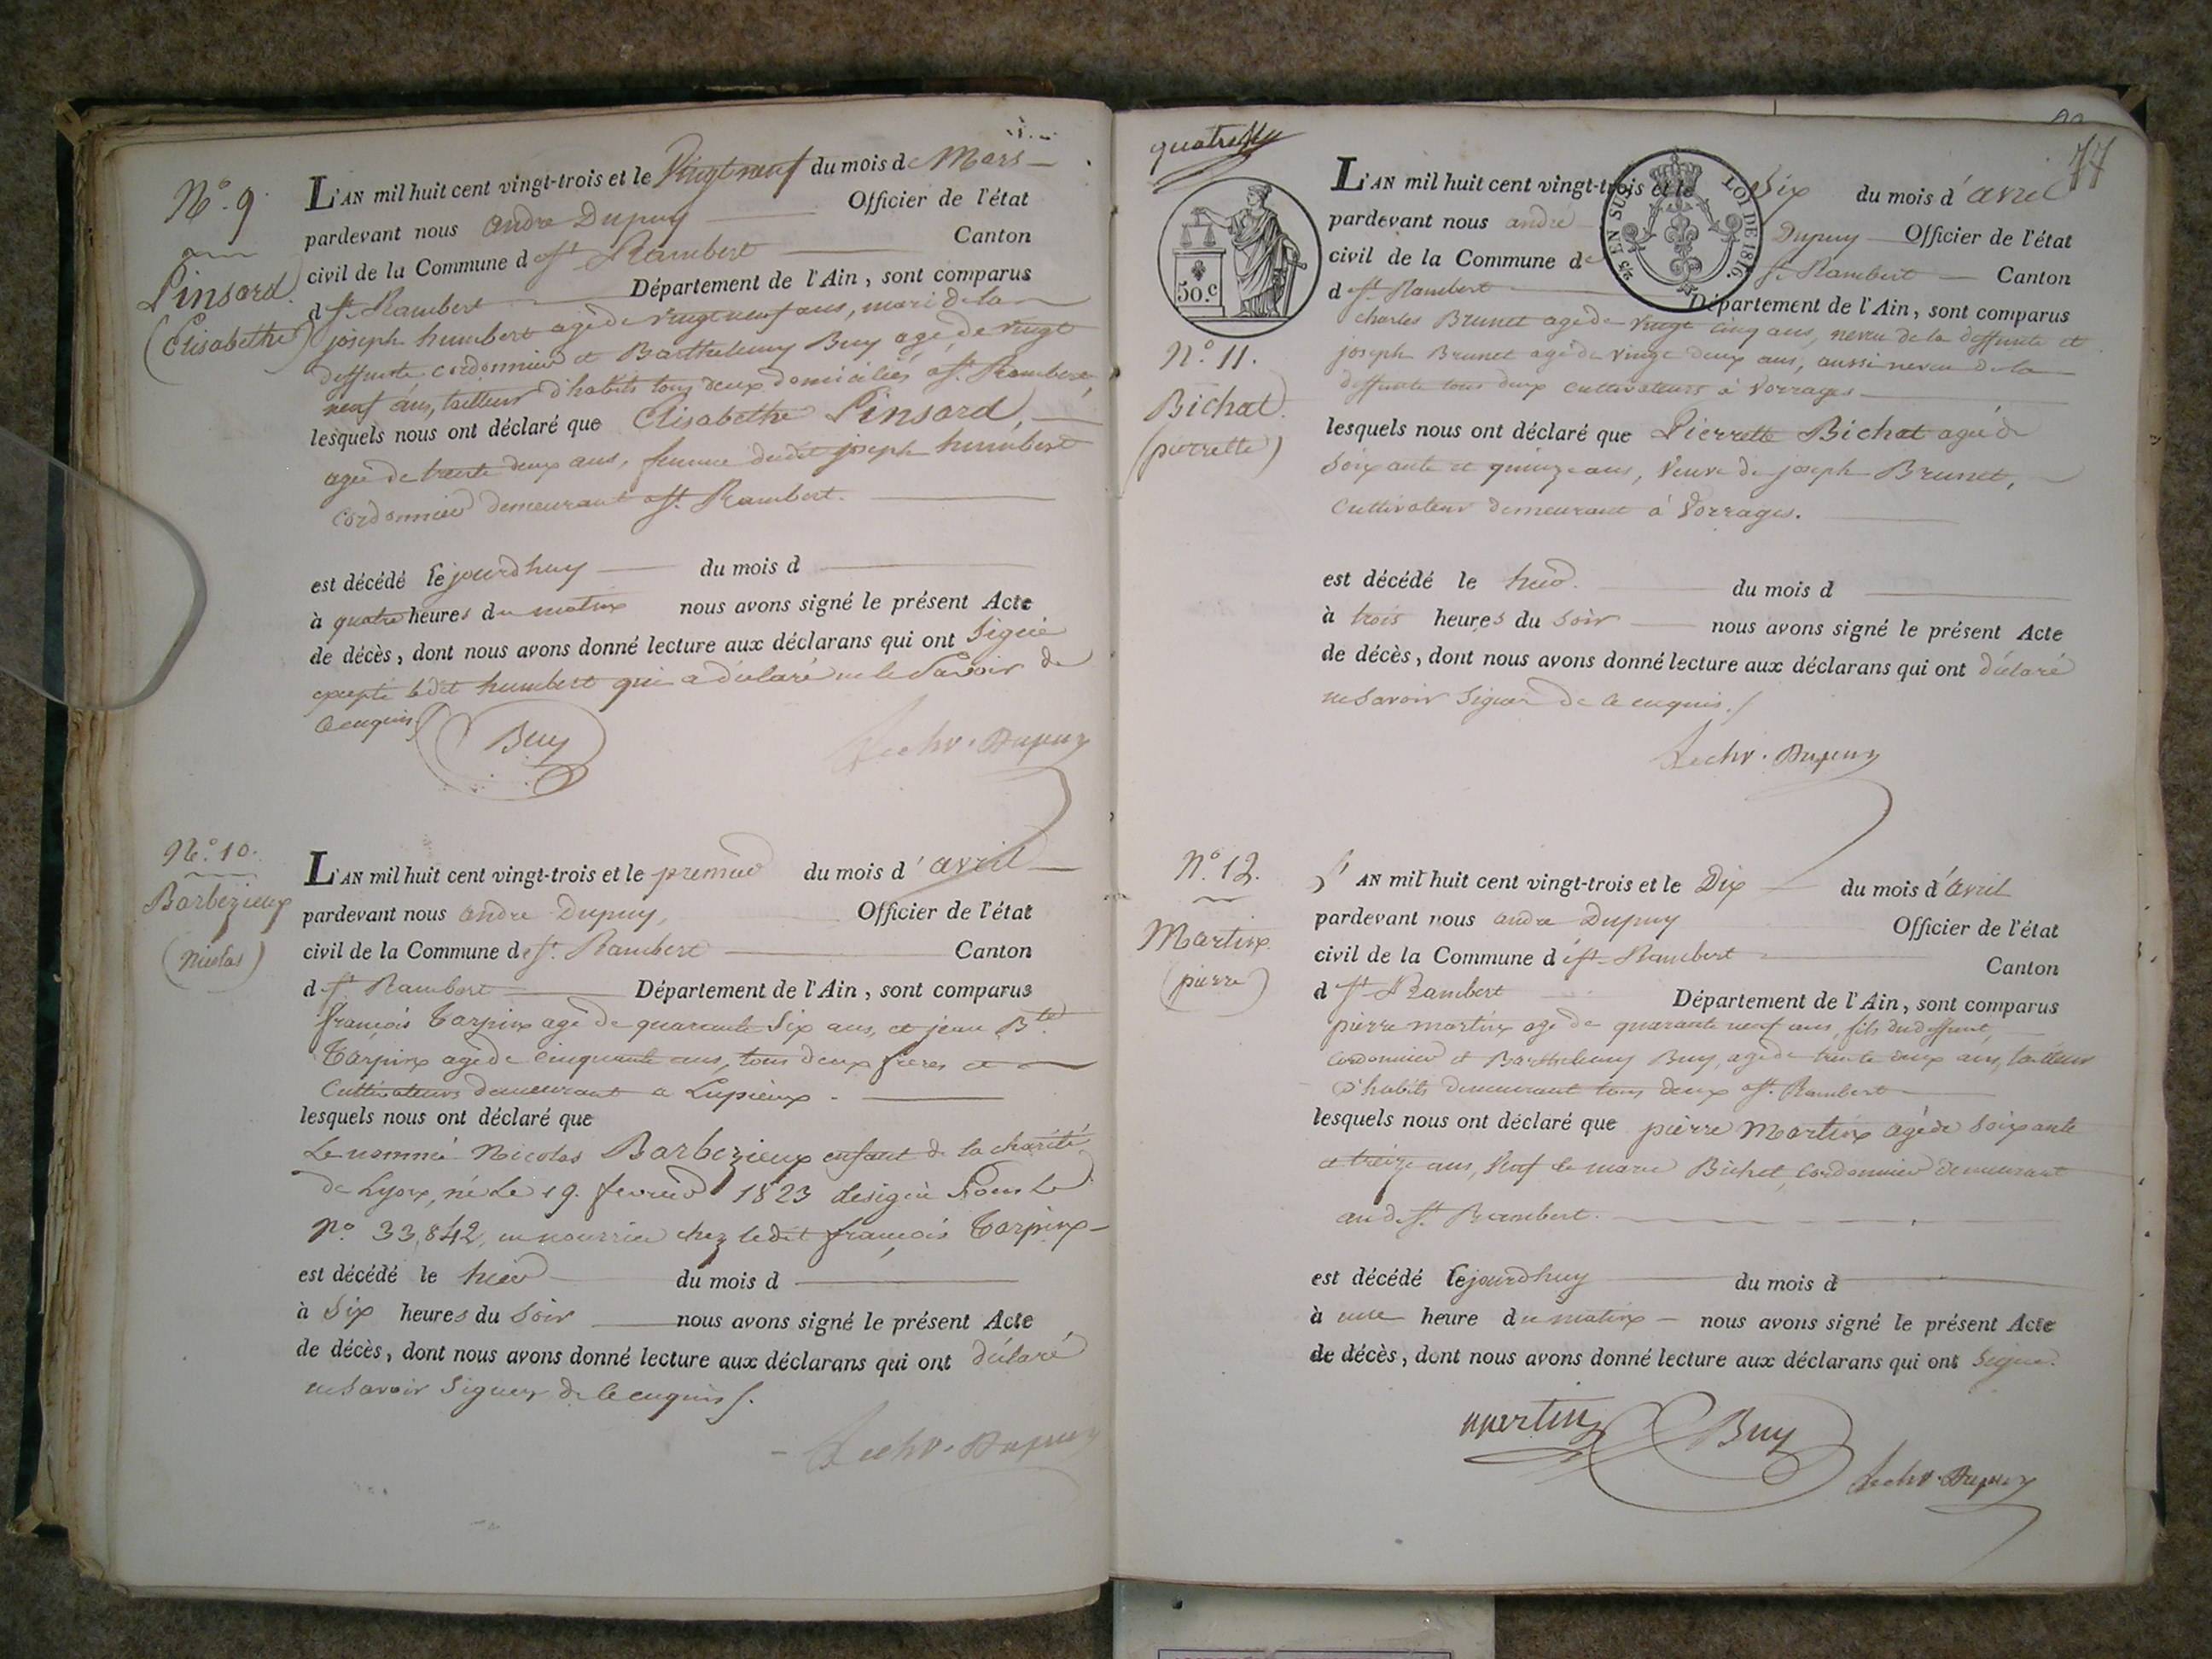 N.º 9
Pinsard
(Elisabethe)
L'AN mil huit cent vingt-trois et le Vingt neuf du mois de Mars
pardevant nous andré Dupuy Officier de l'état
civil de la Commune d St. Rambert Canton
d St. Rambert Département de l'Ain, sont comparus
joseph humbert agé de vingt neuf ans, mari de la
deffunte cordonnier et Barthelemy Buy agé de vingt
neuf ans, tailleur d'habits tous deux domiciliés a St. Rambert,
lesquels nous ont déclaré que Elisabethe Pinsard,
agée de trente deux ans, femme dudit joseph humbert
cordonnier demeurant a St. Rambert.
est décédé le jourdhuy du mois d
à quatre heures du matin nous avons signé le présent Acte
de décès, dont nous avons donné lecture aux déclarans qui ont signé
excepté ledit humbert qui a déclaré ne le savoir de
ce enquis
Buy
Dupuy
N.º 10.
Barbezieux
(nicolas)
L'AN mil huit cent vingt-trois et le premier du mois d'avril
pardevant nous andré Dupuy, Officier de l'état
civil de la Commune de St. Rambert Canton
d St. Rambert Département de l'Ain, sont comparus
françois Carpin agé de quarante six ans, et jean Bte
Carpin agé de cinquante ans, tous deux freres et
Cultivateurs demeurant a Lupieux.
lesquels nous ont déclaré que
Le nommé Nicolas Barbezieux enfant de la charité
de Lyon, né le 19. fevrier 1823 designé sous le
nº 33,842, en nourrice chez ledit françois Carpin
est décédé le hier du mois d
à six heures du soir nous avons signé le présent Acte
de décès, dont nous avons donné lecture aux déclarans qui ont déclaré
ne savoir signer de ce enquis.
Dupuy
77
50.c
25 EN SUS LOI DE 1816.
N.º 11.
Bichat.
(pierrette)
L'AN mil huit cent vingt-trois et le Six du mois d'avril
pardevant nous andré Dupuy Officier de l'état
civil de la Commune de St. Rambert Canton
d St. Rambert Département de l'Ain, sont comparus
charles Brunet agé de vingt cinq ans, neveu de la deffunte et
joseph Brunet agé de vingt deux ans, aussi neveu de la
deffunte tous deux cultivateurs à Vorrages
lesquels nous ont déclaré que Pierrette Bichat agée de
soixante et quinze ans, Veuve de joseph Brunet,
cultivateur demeurant à Vorrages.
est décédé le hier. du mois d
à trois heures du soir nous avons signé le présent Acte
de décès, dont nous avons donné lecture aux déclarans qui ont déclaré
ne savoir signer de ce enquis.
Dupuy
N.º 12.
Martin
(pierre)
L'AN mil huit cent vingt-trois et le Dix du mois d'avril
pardevant nous andré Dupuy Officier de l'état
civil de la Commune de St. Rambert Canton
d St. Rambert Département de l'Ain, sont comparus
pierre martin agé de quarante neuf ans, fils du deffunt,
cordonnier et Barthelemy Buy, agé de trente deux ans, tailleur
d'habits demeurant tous deux a St. Rambert
lesquels nous ont déclaré que pierre Martin agé de soixante
et treize ans, Veuf de marie Bichet, Cordonnier demeurant
aud. St. Rambert.
est décédé le jourdhuy du mois d
à une heure du matin nous avons signé le présent Acte
de décès, dont nous avons donné lecture aux déclarans qui ont signé.
martin
Buy
Dupuy